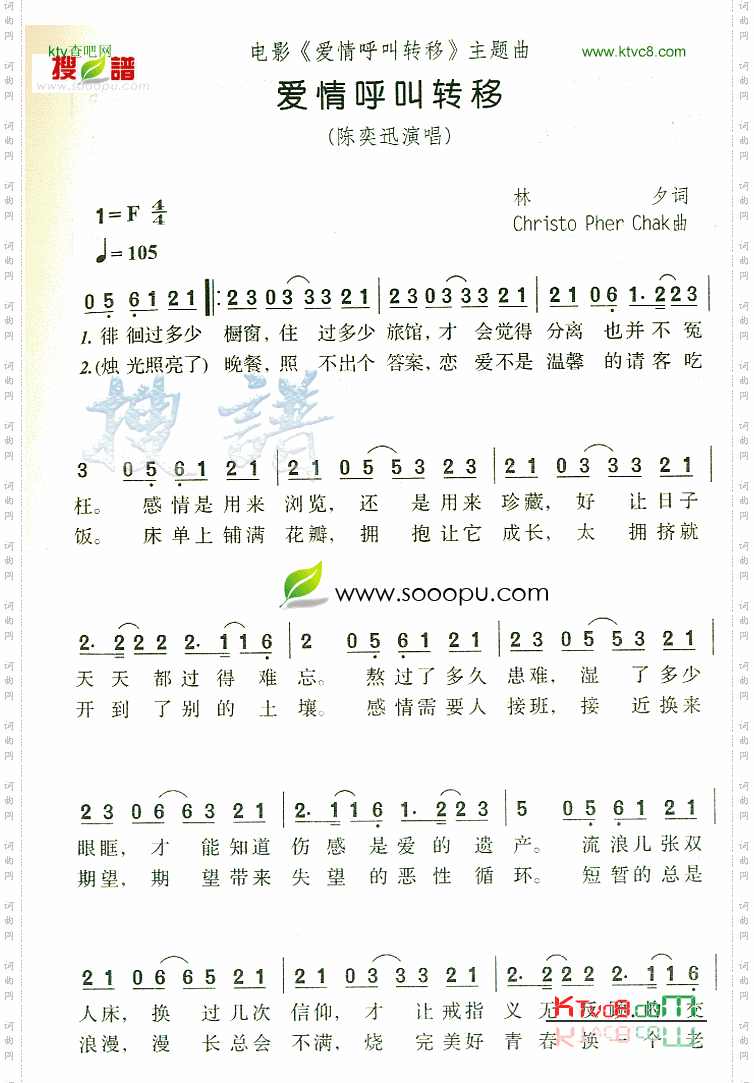 ktv查吧网
搜谱
www.sooopu.com
电影《爱情呼叫转移》主题曲
www.ktvc8.com
爱情呼叫转移
(陈奕迅演唱)
1=F 4/4
林 夕词
♩=105
Christo Pher Chak曲
0 5 6 1 2 1 ‖: 2 3 0 3 3 3 2 1 | 2 3 0 3 3 3 2 1 | 2 1 0 6 1· 2 2 3 |
1. 徘 徊过多少 橱窗，住 过多少 旅馆，才 会觉得 分离 也并不 冤
2.(烛 光照亮了) 晚餐，照 不出个 答案，恋 爱不是 温馨 的请客 吃
搜譜
3 0 5 6 1 2 1 | 2 1 0 5 5 3 2 1 | 2 1 0 3 3 3 2 1 |
枉。 感情是用来 浏览，还 是用来 珍藏，好 让日子
饭。 床单上铺满 花瓣，拥 抱让它 成长，太 拥挤就
www.sooopu.com
2· 2 2 2 2· 1 1 6 | 2 0 5 6 1 2 1 | 2 3 0 5 5 3 2 1 |
天天都过得难 忘。熬过了多久 患难，湿 了多少
开到了别的土 壤。感情需要人 接班，接 近换来
2 3 0 6 6 3 2 1 | 2· 1 1 6 1· 2 2 2 | 5 0 5 6 1 2 1 |
眼眶，才 能知道 伤感是爱的遗 产。 流浪几张双
期望，期 望带来 失望的恶性循 环。 短暂的总是
2 1 0 6 6 5 2 1 | 2 1 0 3 3 3 2 1 | 2· 2 2 2 2· 1 1 6 |
人床，换 过几次 信仰，才 让戒指 义无
浪漫，漫 长总会 不满，烧 完美好 青春换一个老
Ktvc8.com